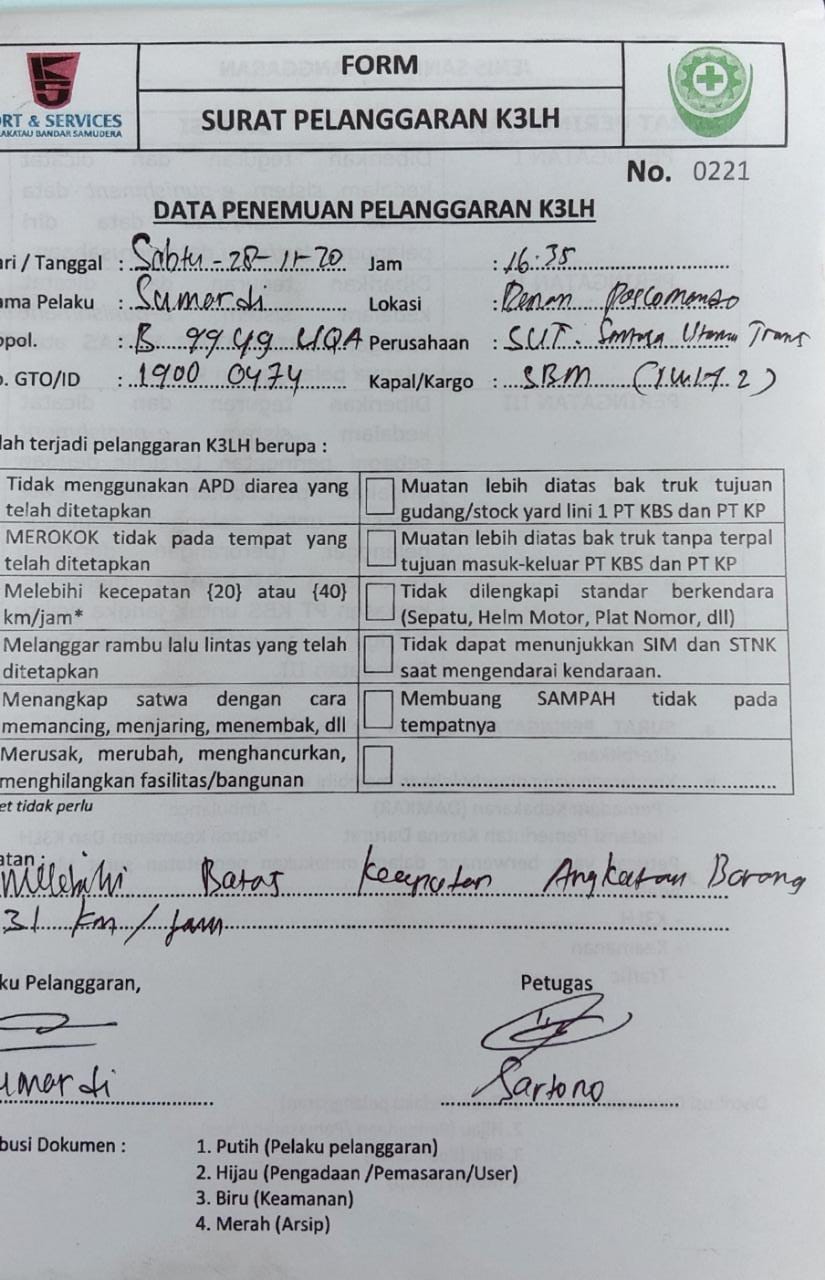 FORM
RT & SERVICES
AKATAU BANDAR SAMUDERA
SURAT PELANGGARAN K3LH
No. 0221
DATA PENEMUAN PELANGGARAN K3LH
ari / Tanggal : Sabtu - 28-11-20 Jam : 16:35
ama Pelaku : Sumardi Lokasi : Depan Poscomando
opol. : B 9949 UQA Perusahaan : SUT. Sentosa Utama Trans
o. GTO/ID : 1900 0474 Kapal/Kargo : SBM
lah terjadi pelanggaran K3LH berupa :
Tidak menggunakan APD diarea yang Muatan lebih diatas bak truk tujuan
telah ditetapkan gudang/stock yard lini 1 PT KBS dan PT KP
MEROKOK tidak pada tempat yang Muatan lebih diatas bak truk tanpa terpal
telah ditetapkan tujuan masuk-keluar PT KBS dan PT KP
Melebihi kecepatan {20} atau {40} Tidak dilengkapi standar berkendara
km/jam* (Sepatu, Helm Motor, Plat Nomor, dll)
Melanggar rambu lalu lintas yang telah Tidak dapat menunjukkan SIM dan STNK
ditetapkan saat mengendarai kendaraan.
Menangkap satwa dengan cara Membuang SAMPAH tidak pada
memancing, menjaring, menembak, dll tempatnya
Merusak, merubah, menghancurkan,
menghilangkan fasilitas/bangunan
et tidak perlu
atan :
Melebihi Batas Kecepatan Angkatan Barang
31 km/jam
ku Pelanggaran, Petugas
umardi Sartono
busi Dokumen : 1. Putih (Pelaku pelanggaran)
2. Hijau (Pengadaan /Pemasaran/User)
3. Biru (Keamanan)
4. Merah (Arsip)